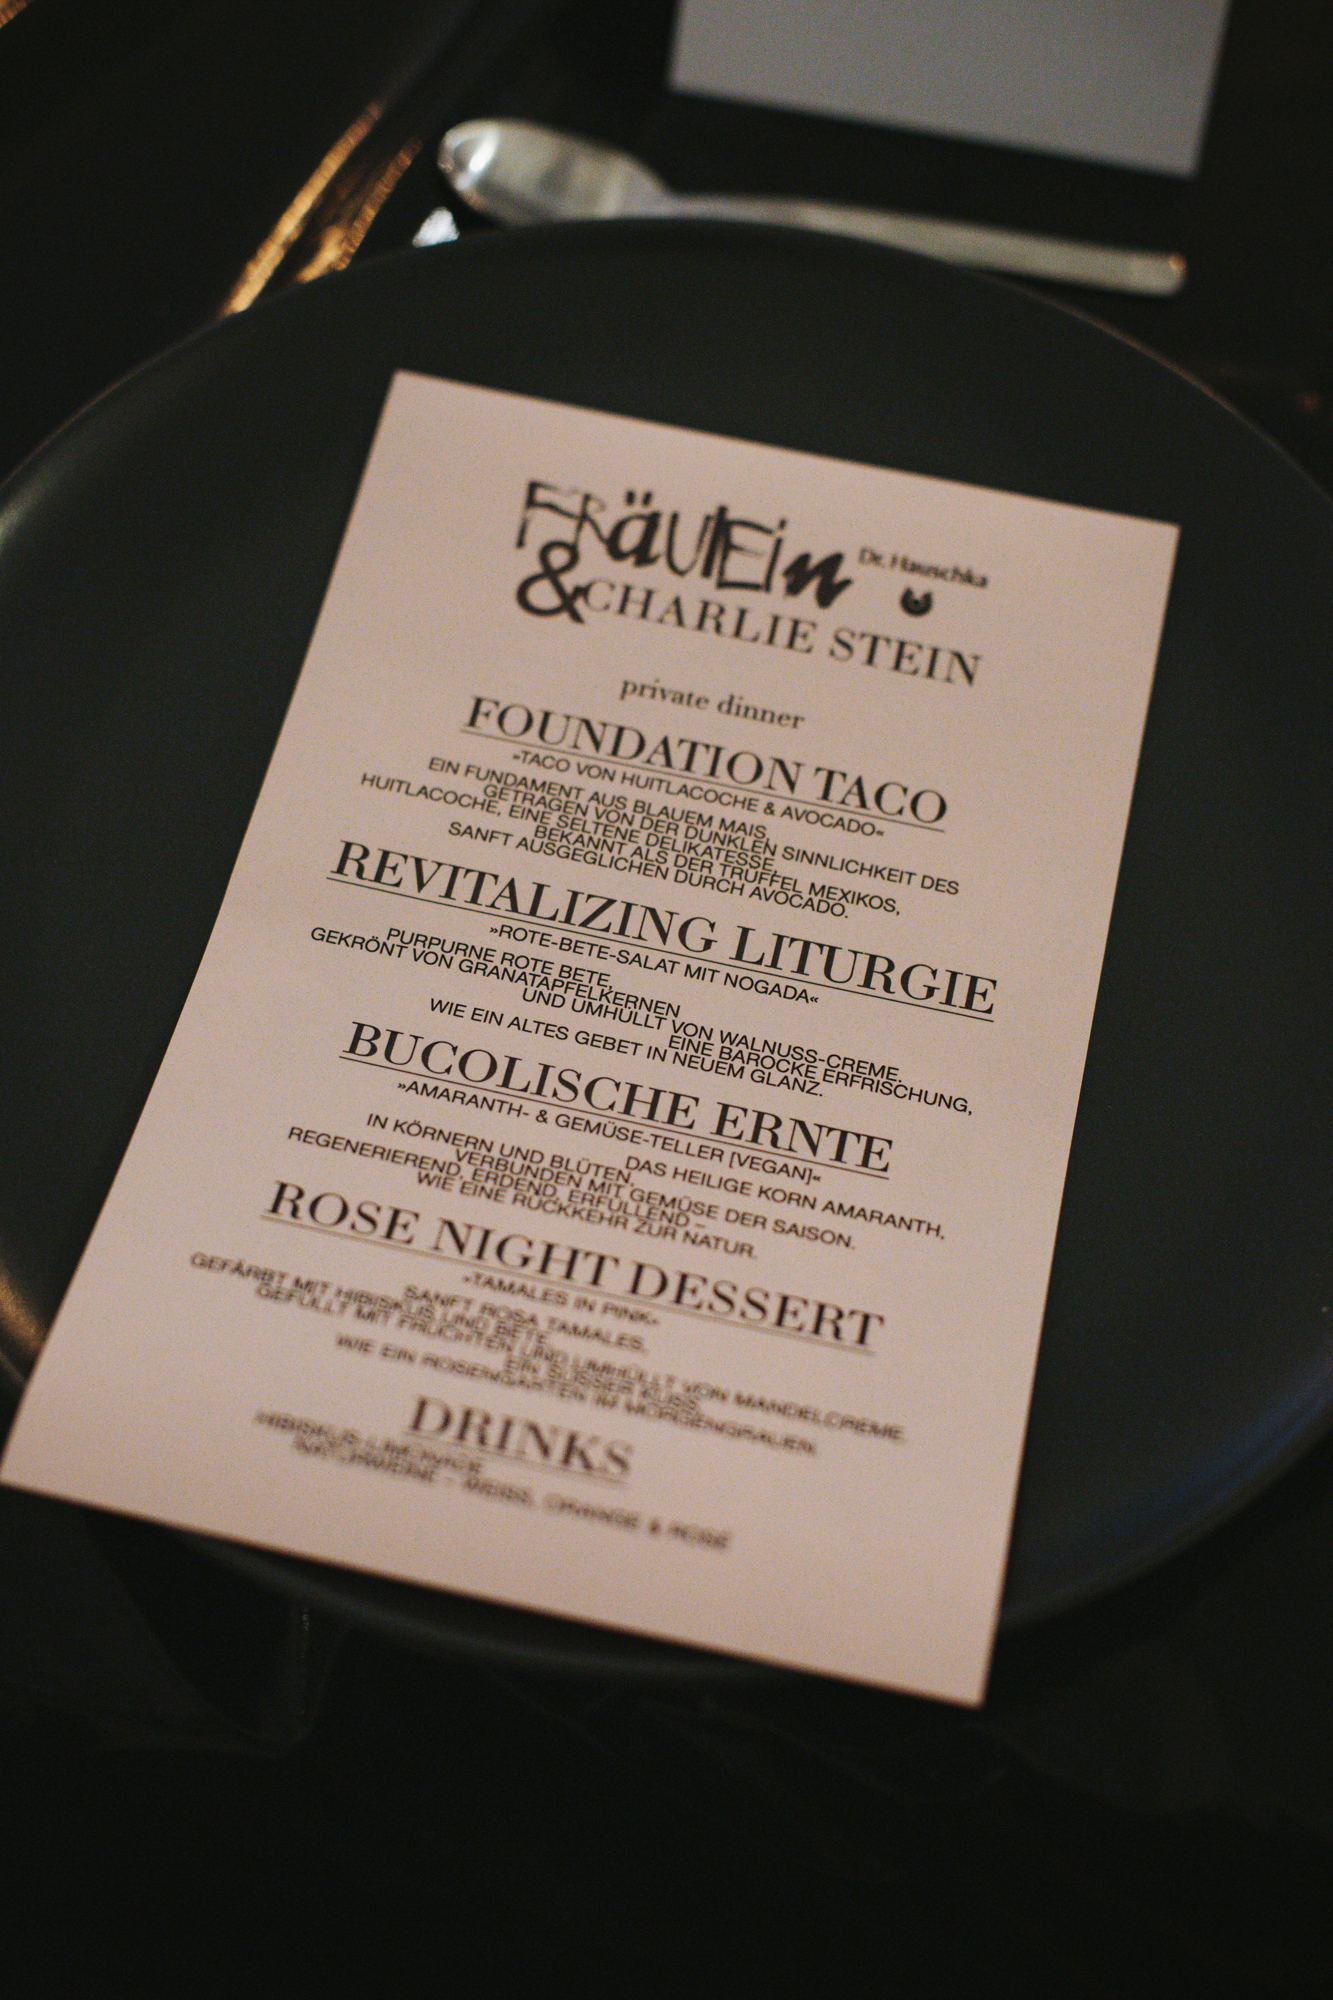 FRäulEin
Dr. Hauschka
& CHARLIE STEIN
private dinner
FOUNDATION TACO
»TACO VON HUITLACOCHE & AVOCADO«
EIN FUNDAMENT AUS BLAUEM MAIS,
GETRAGEN VON DER DUNKLEN SINNLICHKEIT DES
HUITLACOCHE, EINE SELTENE DELIKATESSE,
BEKANNT ALS DER TRÜFFEL MEXIKOS,
SANFT AUSGEGLICHEN DURCH AVOCADO.
REVITALIZING LITURGIE
»ROTE-BETE-SALAT MIT NOGADA«
PURPURNE ROTE BETE,
GEKRÖNT VON GRANATAPFELKERNEN
UND UMHÜLLT VON WALNUSS-CREME.
EINE BAROCKE ERFRISCHUNG,
WIE EIN ALTES GEBET IN NEUEM GLANZ.
BUCOLISCHE ERNTE
»AMARANTH- & GEMÜSE-TELLER [VEGAN]«
DAS HEILIGE KORN AMARANTH,
IN KÖRNERN UND BLÜTEN,
VERBUNDEN MIT GEMÜSE DER SAISON.
REGENERIEREND, ERDEND, ERFÜLLEND –
WIE EINE RÜCKKEHR ZUR NATUR.
ROSE NIGHT DESSERT
»TAMALES IN PINK«
SANFT ROSA TAMALES,
GEFÄRBT MIT HIBISKUS UND BETE,
GEFÜLLT MIT FRÜCHTEN UND UMHÜLLT VON MANDELCREME.
EIN SÜSSER KUSS,
WIE EIN ROSENGARTEN IM MORGENGRAUEN.
DRINKS
HIBISKUS-LIMONADE
NATURWEINE – WEISS, ORANGE & ROSÉ